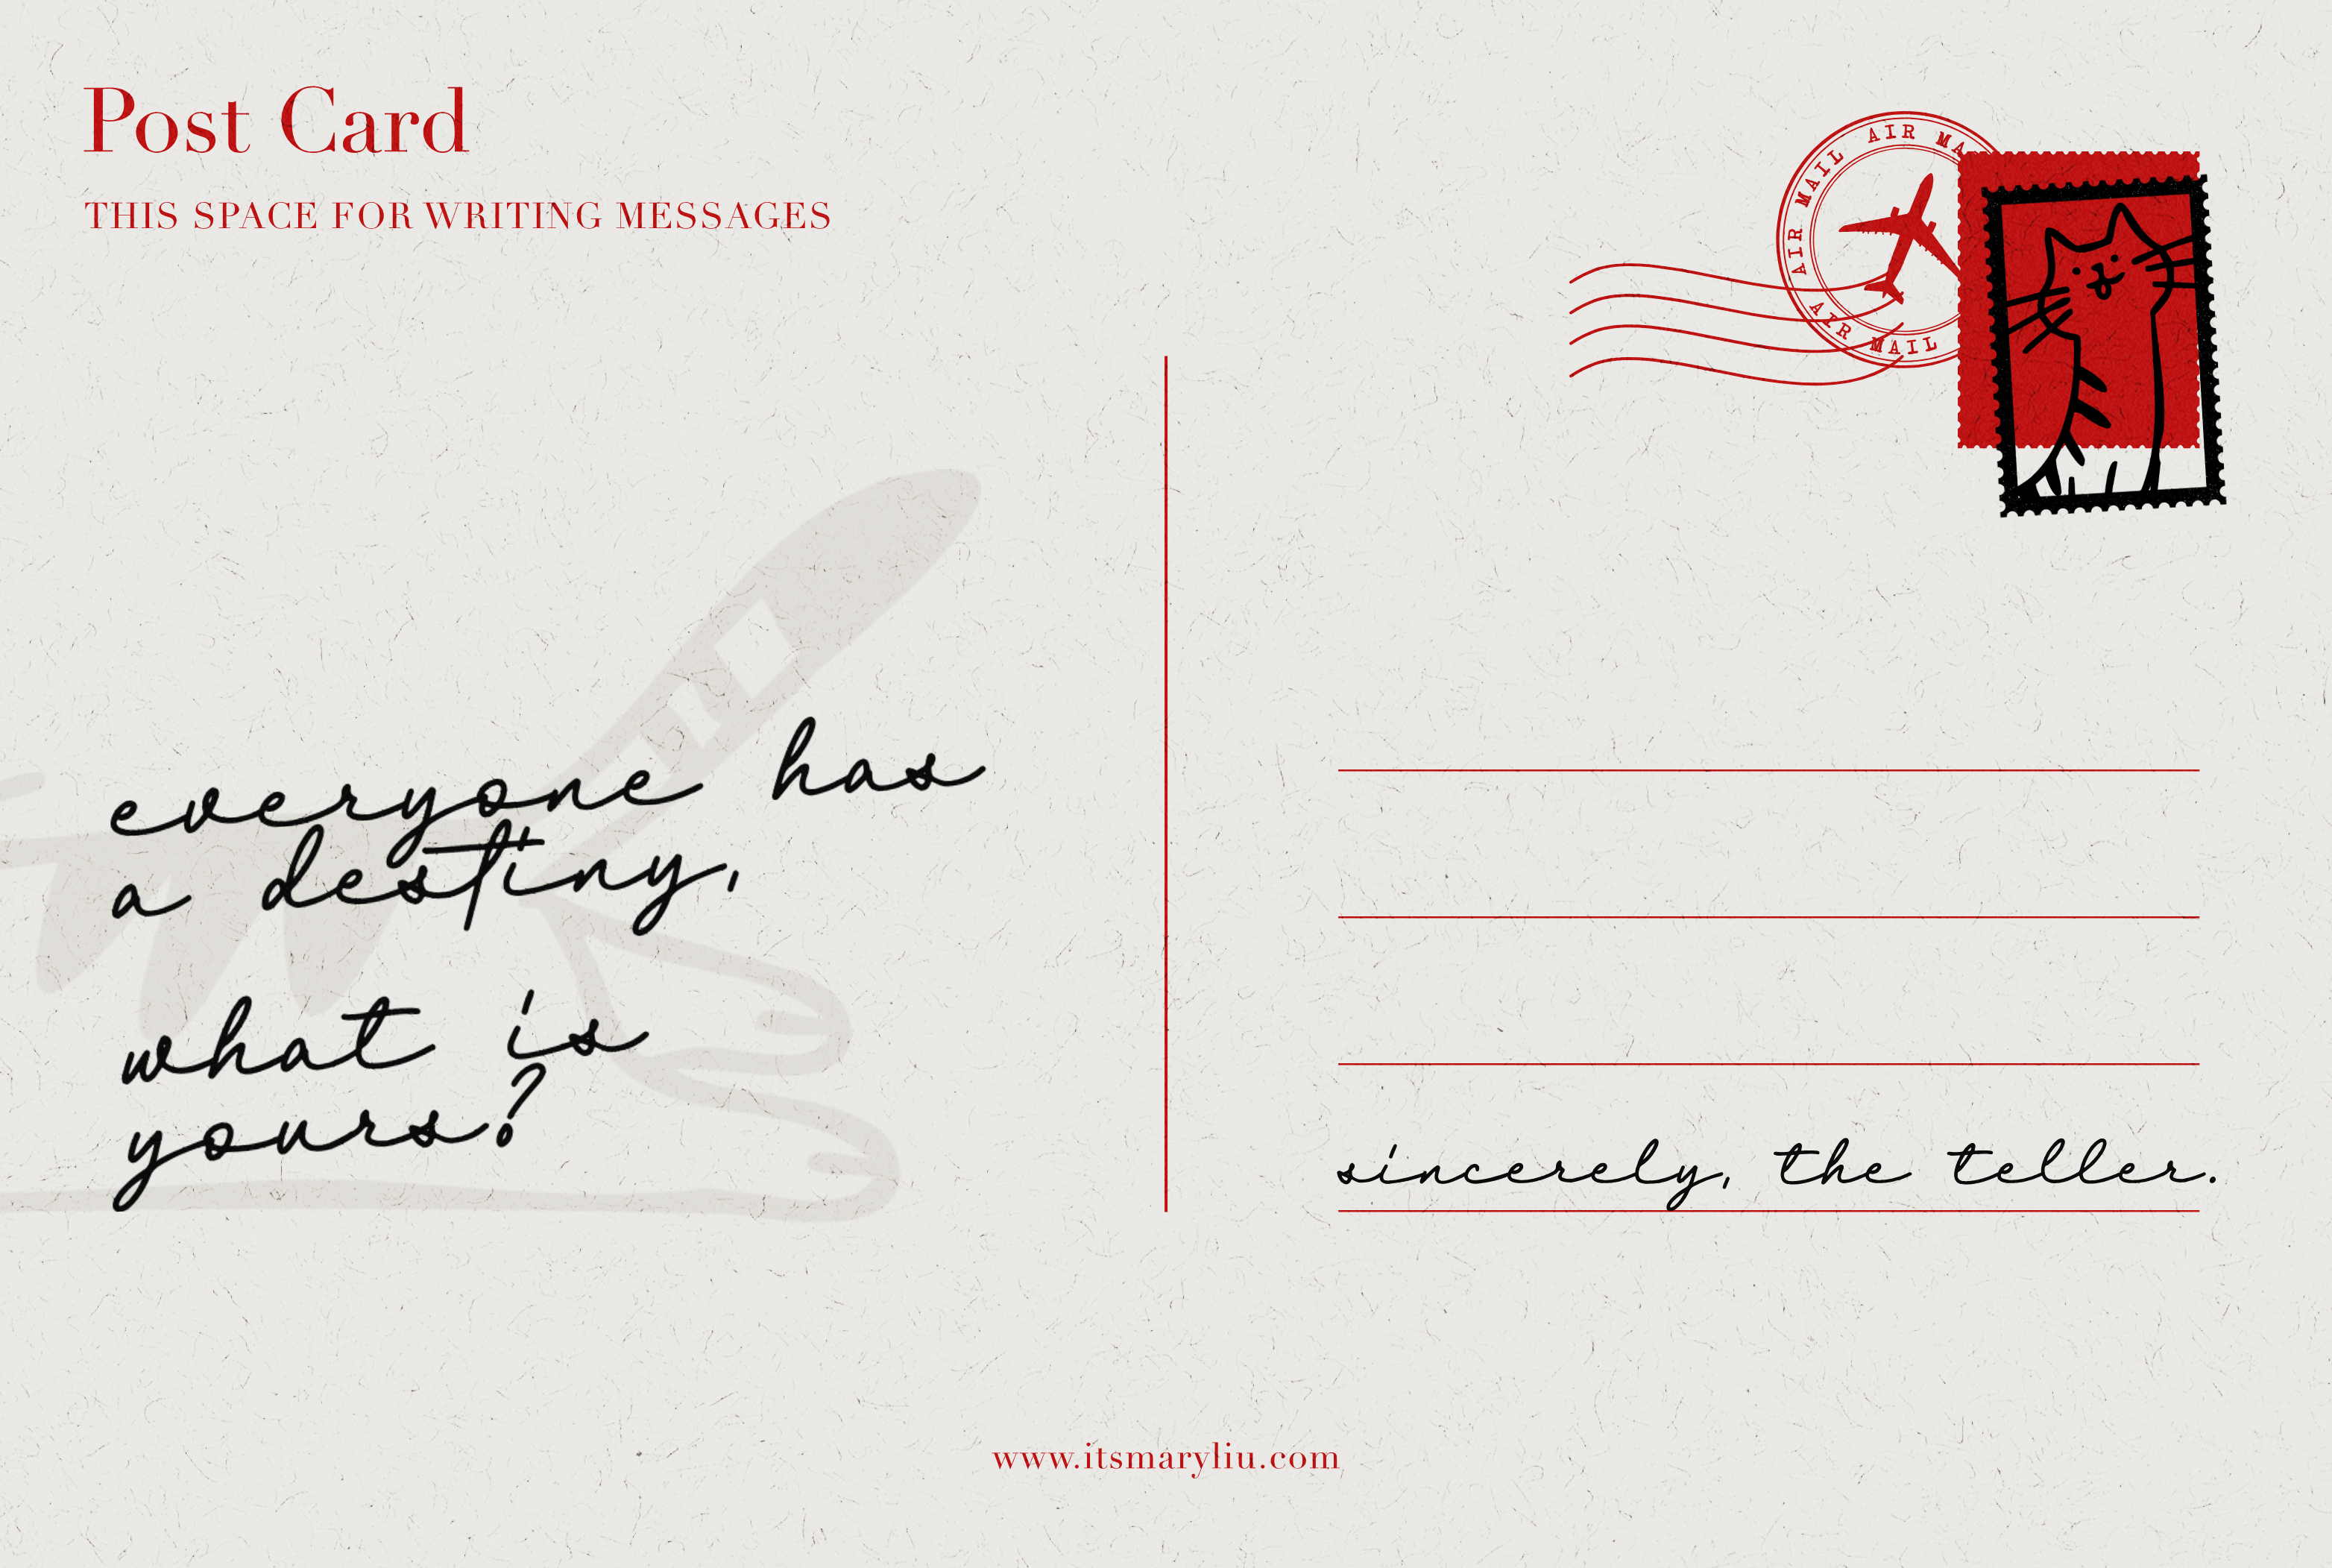 Post Card
THIS SPACE FOR WRITING MESSAGES
AIR MAIL AIR MAIL AIR MA
AIR MAIL
everyone has
a destiny,
what is
yours?
sincerely, the teller.
www.itsmaryliu.com